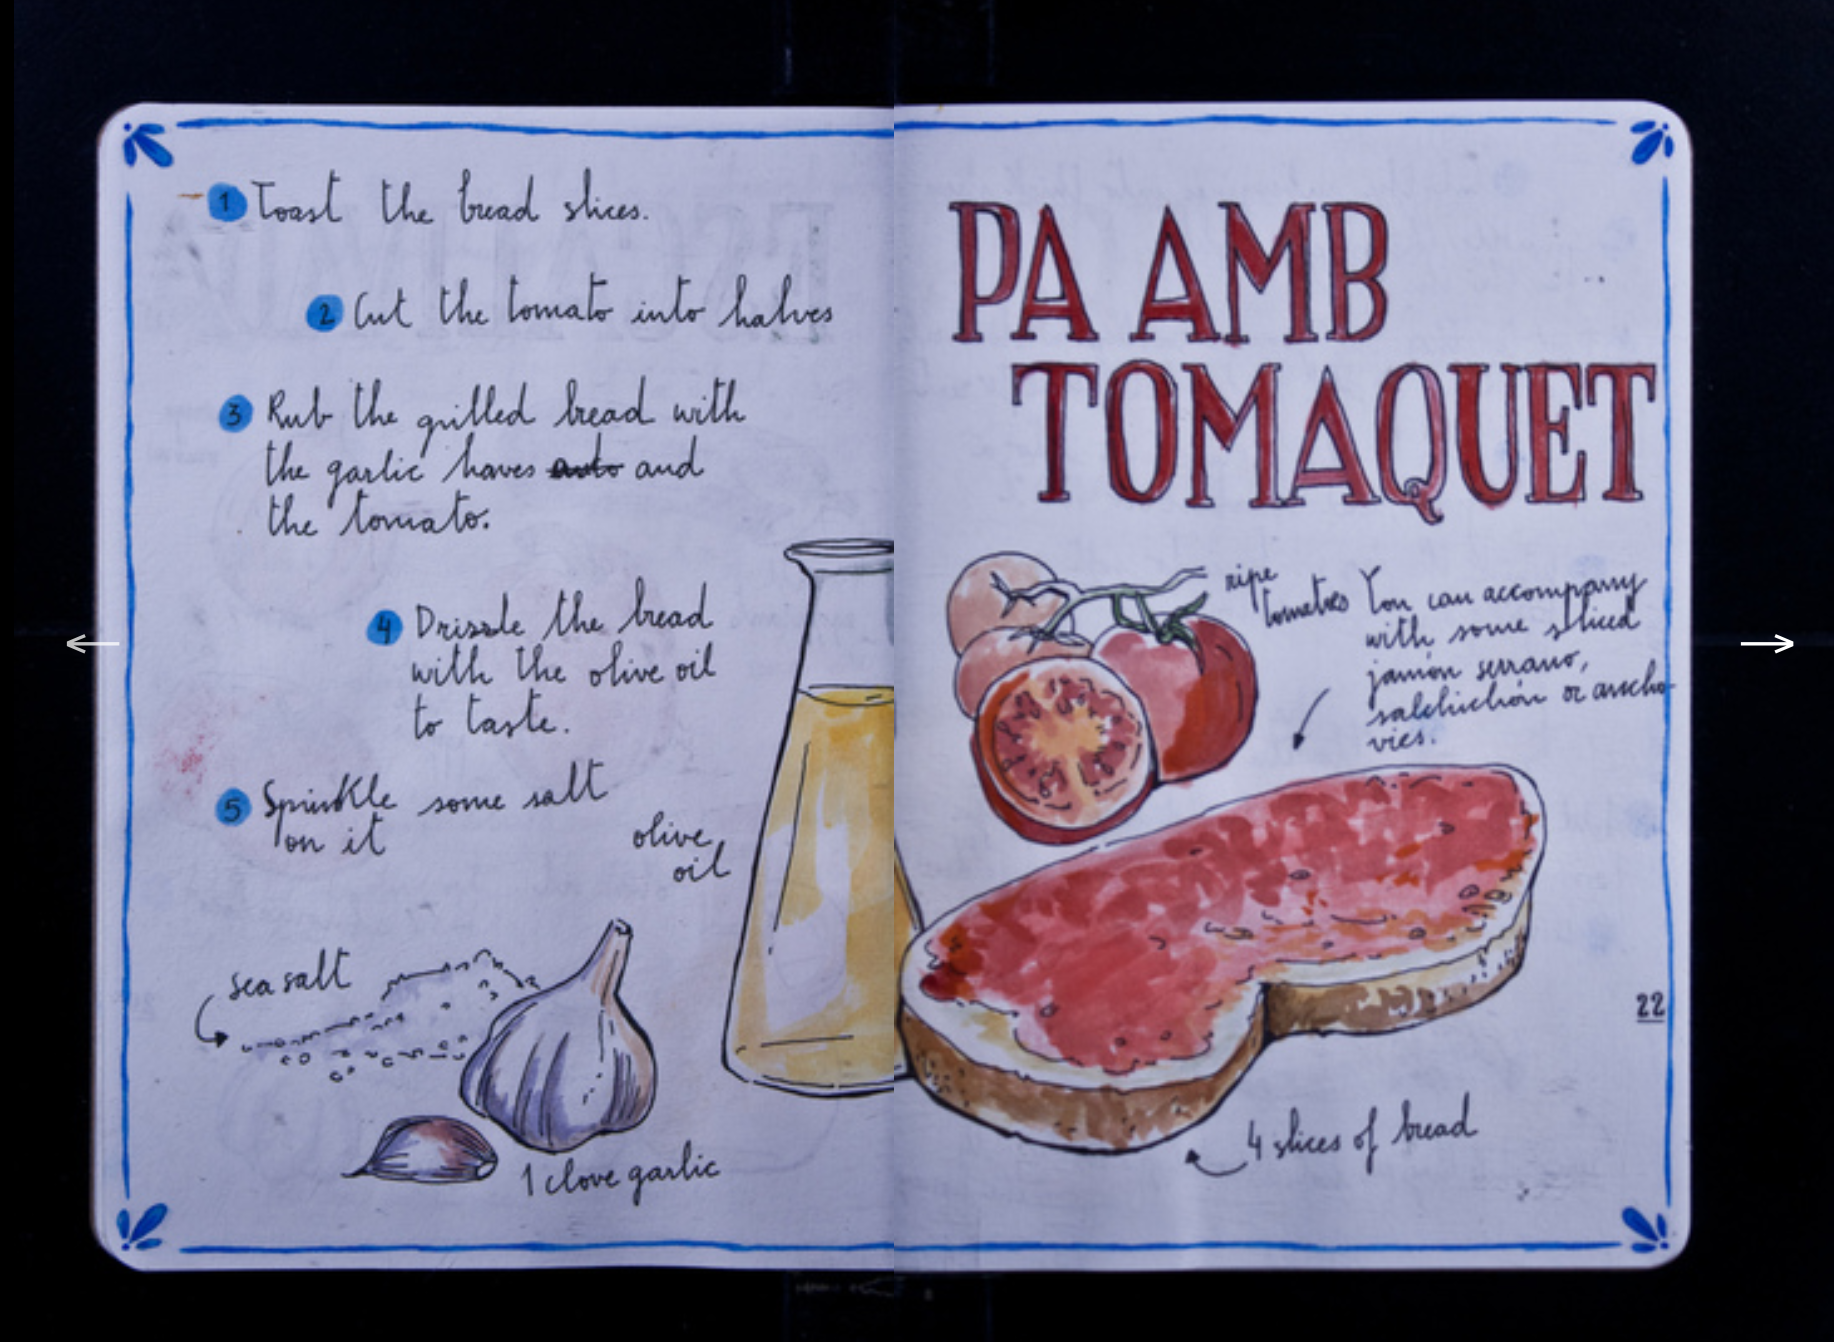 1 Toast the bread slices.
2 Cut the tomato into halves
3 Rub the grilled bread with
the garlic haves and
the tomato.
4 Drizzle the bread
with the olive oil
to taste.
5 Sprinkle some salt
on it
olive
oil
sea salt
1 clove garlic
PA AMB
TOMAQUET
ripe
tomatoes
You can accompany
with some sliced
jamón serrano,
salchichón or ancho-
vies.
22
4 slices of bread